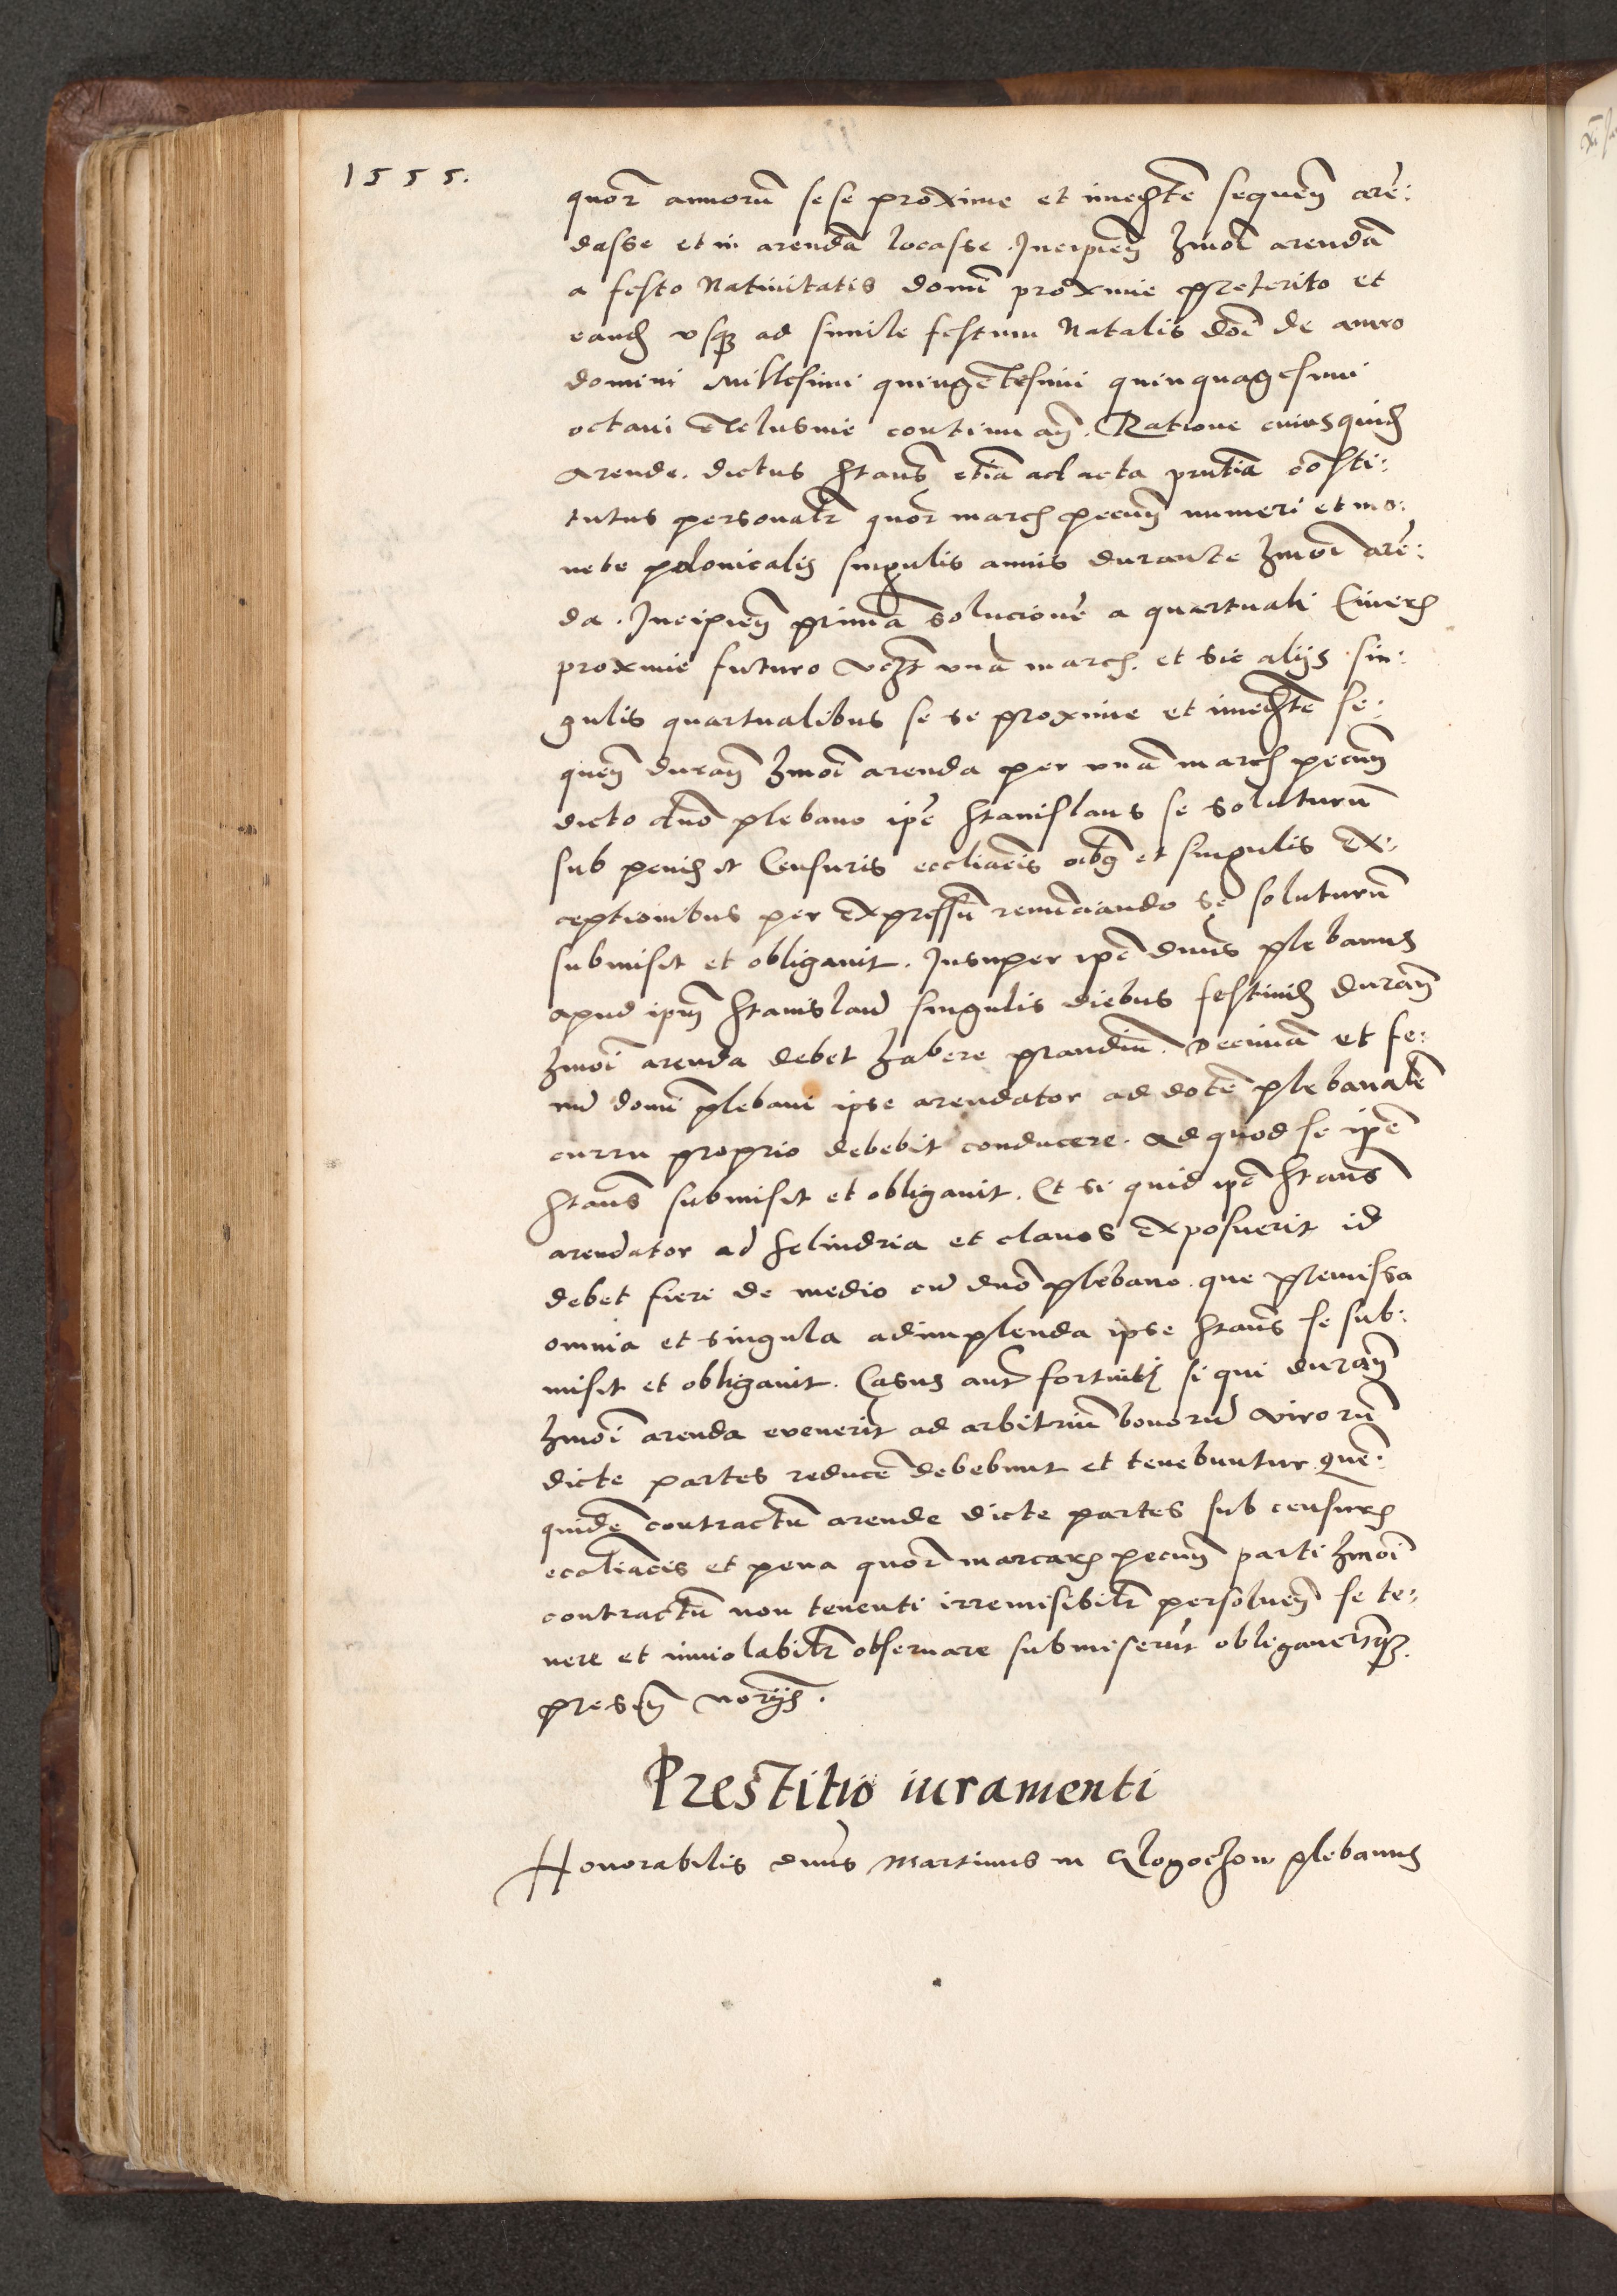 1555.
quor̃ annorũ sese proxime et immedᵗᵉ sequeñ arẽ:
dasse et in arendã locasse. Incipieñ hmõi arendã
a festo Nativitatis domĩ proxime preterito et
eand usq₃ ad simile festum Natalis dñi de anno
domini Millesimi quingẽtesimi quinquagesimi
octavi exclusive continuañ. Ratione cuiusquid
Arende. dictus Stañs etiã ad acta pñtia cõsti:
tutus personalr quor̃ march pecuñ numeri et mo:
nete polonicalis singulis annis durante hmõi arẽ:
da. Incipieñ primã solucionẽ a quartuali Cinerũ
proxime futuro vcȝt unã march. et sic alijs sin:
gulis quartualibus se se proxime et immedᵗᵉ se:
queñ durañ hmõi arenda per unã march pecuñ
dicto dño plebano ipẽ Stanislaus se soluturũ
sub penis et Censuris ecclĩacis oibȝ et singulis ex:
ceptionibus per expressũ renunciando se soluturũ
submisit et obligavit. Insuper ipẽ dñus plebanus
apud ipm̃ Stanislaũ singulis diebus festivis durañ
hmõi arenda debet habere prandiũ. Decimã et fe:
nũ domĩ plebani ipse arendator ad dotẽ plebanalẽ
curru proprio debebit conducere. Ad quod se ipẽ
Stañs submisit et obligavit. Et si quid ipẽ Stañs
arendator ad Selindria et clavos exposuerit id
debet fieri de medio cũ dño plebano. que premissa
omnia et singula adimplenda ipse Stañs se sub:
misit et obligavit. Casus aut̃ fortuiti si qui durañ
hmõi arenda evenerit ad arbitriũ bonorũ virorũ
dicte partes reducẽ debebunt et tenebuntur quẽ:
quidẽ contractũ arende dicte partes sub censuris
ecclĩacis et pena quor̃ marcarũ pecuñ parti hmõi
contractũ non tenenti irremisibilr persolueñ se te:
nere et inviolabilr observare submiserũt obligaverũtq₃.
preseñ nõrijs.
Prestitio iuramenti
Honorabilis dñus Martinus in Glogochow plebanus